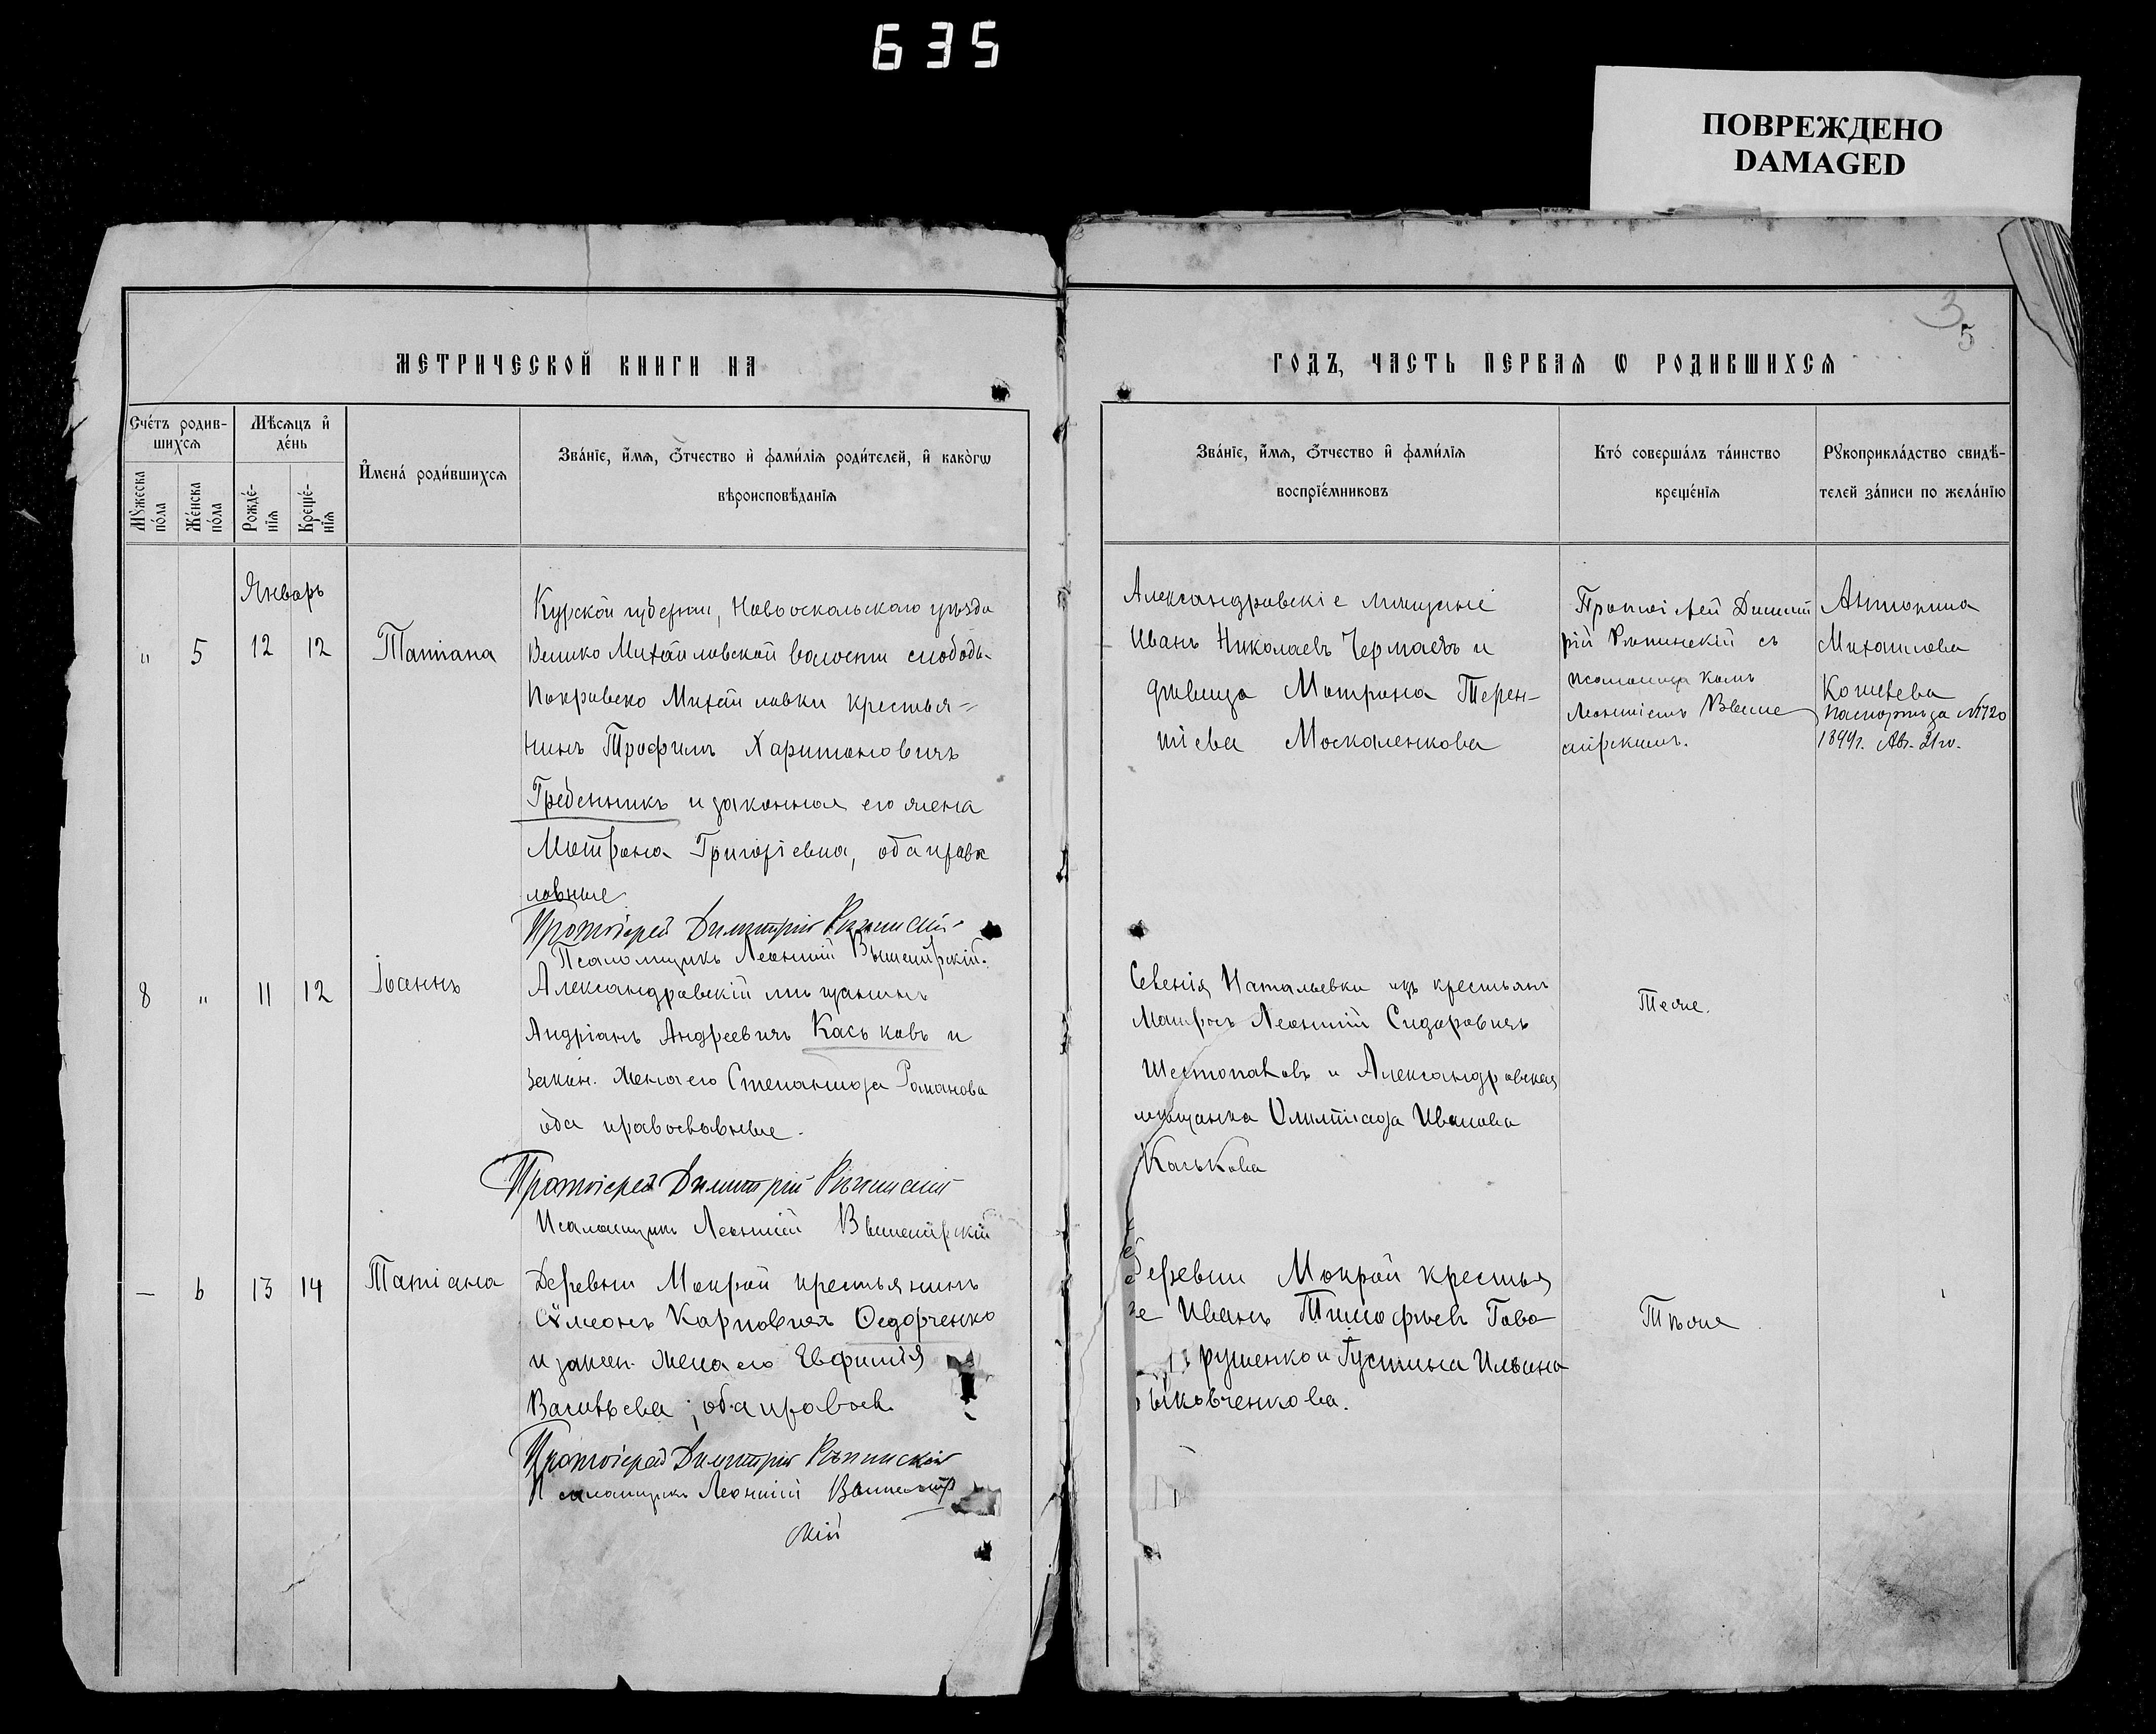 635
ПОВРЕЖДЕНО
DAMAGED
3
5
МЕТРИЧЕСКОЙ КНИГИ НА
ГОДЪ, ЧАСТЬ ПЕРВАЯ Ѡ РОДИВШИХСЯ
Сче́тъ родив-
шихсѧ
Мꙋ́жеска по́ла
Же́нска по́ла
Мѣ́сѧцъ и҆ де́нь
Рожде́-нїѧ
Креще́-нїѧ
И҆мена́ роди́вшихсѧ
Зва́нїе, и҆́мѧ, ѻ҆́тчество и҆ фами́лїѧ роди́телей, и҆ како́гѡ
вѣроисповѣ́данїѧ
Зва́нїе, и҆́мѧ, ѻ҆́тчество и҆ фами́лїѧ
воспрїе́мниковъ
Кто́ соверша́лъ та́инство
креще́нїѧ
Рꙋкоприкла́дство свидѣ́-
телей за́писи по жела́нїю
Январь
" 5 12 12 Татіана
Курской губерніи, Новооскольскаго уѣзда
Велико Михайловской волости слободы
Покровско Михайловки крестья=
нинъ Трофимъ Харитоновичъ
Гребенникъ и законная его жена
Матрона Григоріевна, оба права
лавные
Протоіерей Димитрій
Псаломщикъ Леонтій Вышемірскій.
Александровскіе мищане
Иванъ Николаевъ Чермаевъ и
дѣвица Матрона Терен-
тіева Москаленкова
Протоіерей Димит
рій съ
псаломщикомъ
Леонтіемъ Выше
мірскимъ.
Антонина
Михаилова
Кошевева
паспортъ за №1720
1899г. Авг. 21го.
8 " 11 12 Іоаннъ
Александровскій мищанинъ
Андріанъ Андреевичъ Каськовъ и
закон. жена его Степанида Романова
оба православные.
Протоіерей Димитрій
Псаломщикъ Леонтій Вышемірскій
Натальевки изъ крестьянъ
Матросъ Леонтій Сидоровичъ
Шестопаловъ и Александровская
мищанка Олимпіада Иванова
Каськова
Тѣже.
— 6 13 14 Татіана
Деревни Мокрой крестьянинъ
Сѵмеонъ Карповичъ Ѳедорченко
и закон. жена его Евфимія
Васильева; оба правосл.
Протоіерей Димитрій
Псаломщикъ Леонтій Вышемір
скій
Деревни Мокрой крестья
не Иванъ Тимофѣевъ Гово
рушенко и Густина Ильина
Быковченкова.
Тѣже